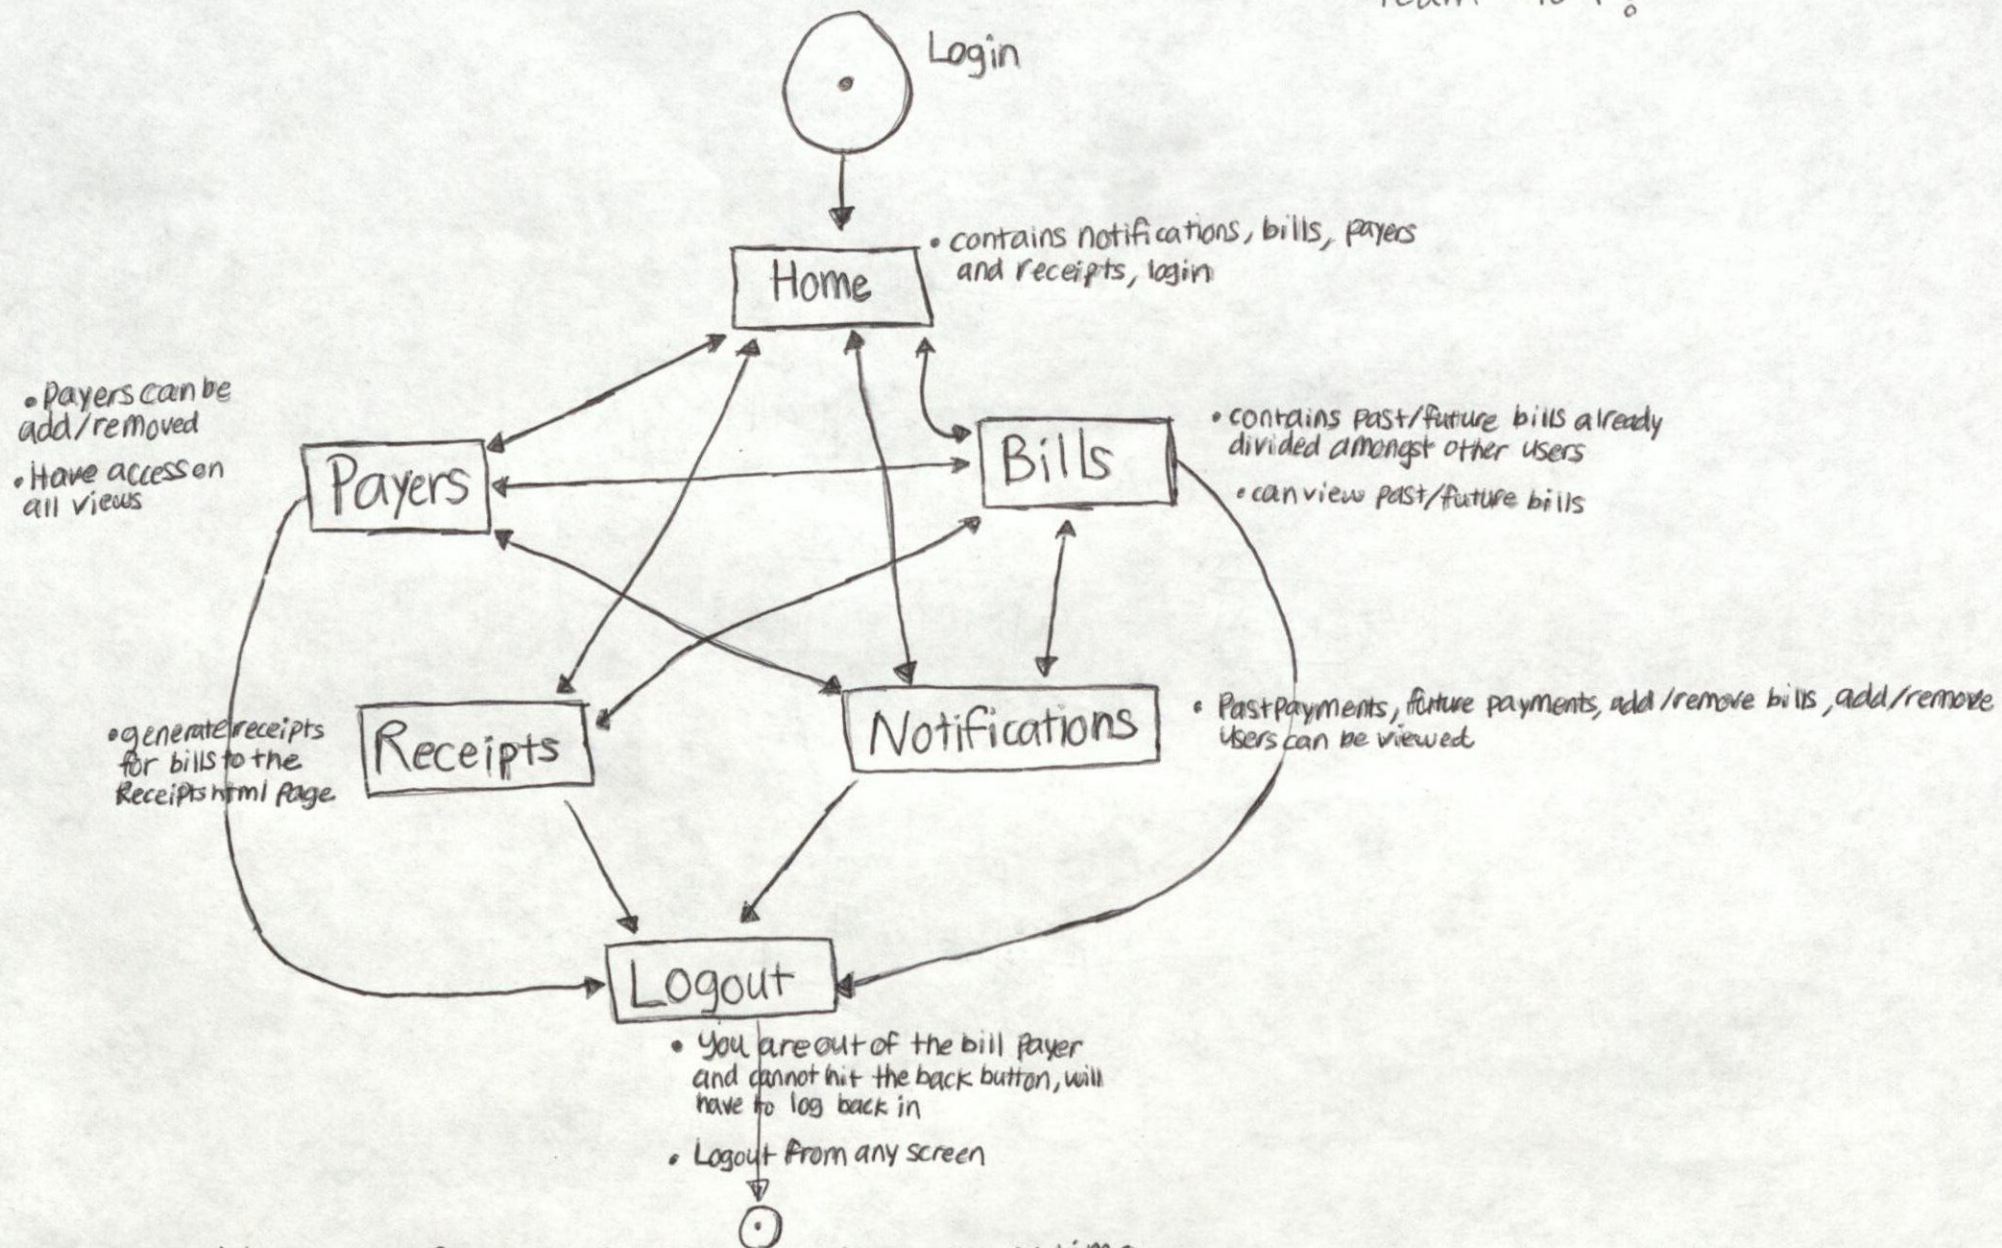 Login
• contains notifications, bills, payers
and receipts, login
Home
• Payers can be
add/removed
• Have access on
all views
Payers
Bills
• contains past/future bills already
divided amongst other users
• can view past/future bills
• generate receipts
for bills to the
Receipts html page
Receipts
Notifications
• Past payments, future payments, add/remove bills, add/remove
users can be viewed
Logout
• You are out of the bill payer
and cannot hit the back button, will
have to log back in
• Logout from any screen